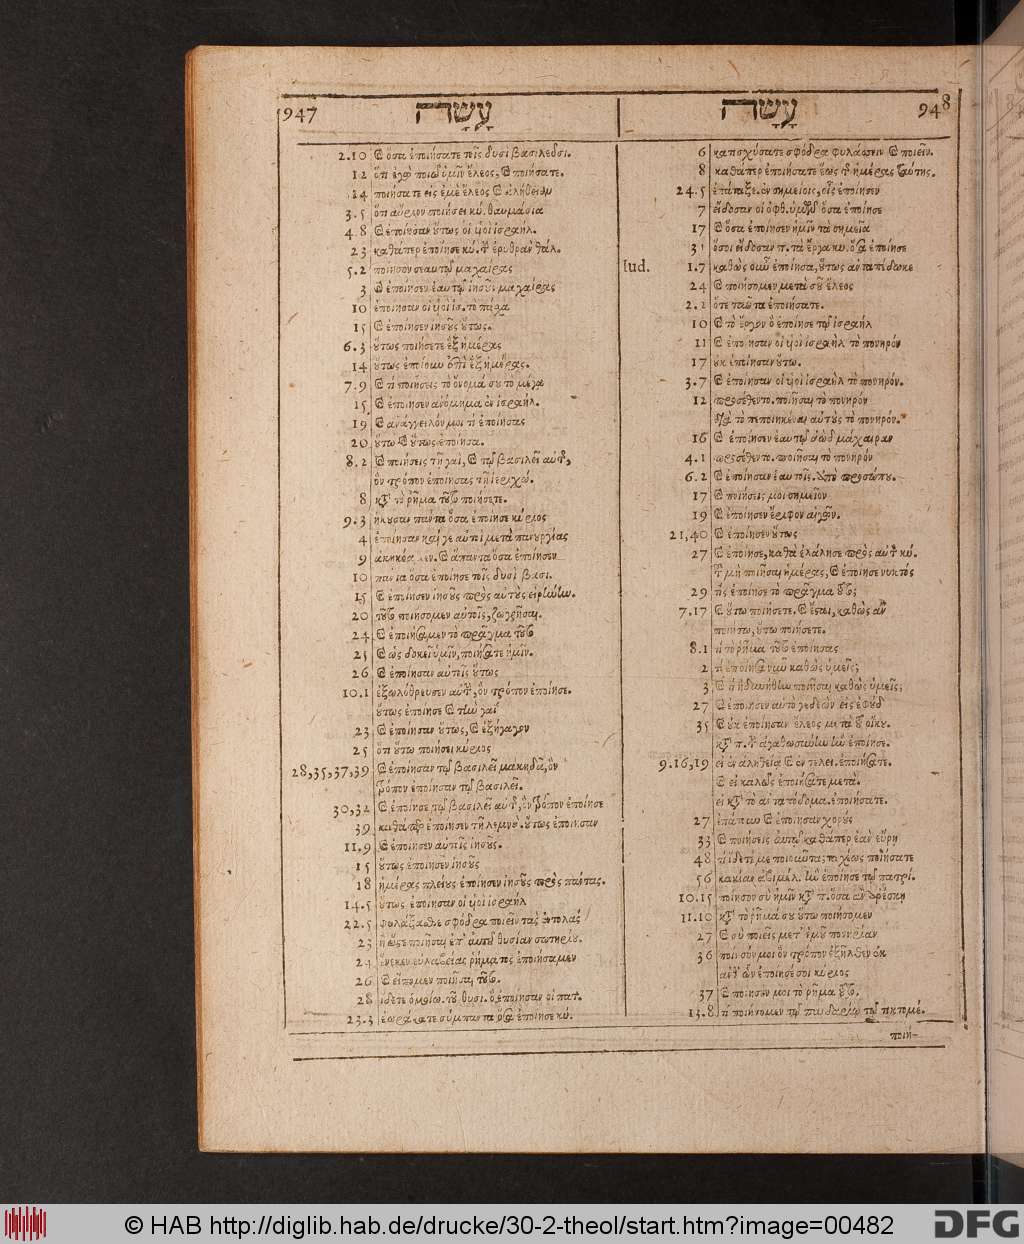 947 עָשָׂה
2.10 ὅσα ἐποιήσατε τοῖς δυσὶ βασιλεῦσι.
12 ὅτι ἐγὼ ποιῶ ὑμῖν ἔλεος, ἐποιήσατε.
14 ποιήσατε εἰς ἐμὲ ἔλεος
3.5 ὅτι αὔριον ποιήσει κύ. θαυμάσια
4.8 ἐποίησαν οὕτως οἱ υἱοὶ ἰσραήλ.
23 καθάπερ ἐποίησε κύ. ἐρυθρὰν θάλ.
5.2 ποίησον σεαυτῷ μαχαίρας
3 ἐποίησεν ἑαυτῷ ἰησοῦς μαχαίρας
10 ἐποίησαν οἱ υἱοὶ ἰσ. τὸ πάσχα
15 ἐποίησεν ἰησοῦς οὕτως.
6.3 οὕτως ποιήσετε ἓξ ἡμέρας
14 οὕτως ἐποίουν ἐπὶ ἓξ ἡμέρας.
7.9 τί ποιήσεις τὸ ὄνομά σου τὸ μέγα
15 ἐποίησεν ἀνόμημα ἐν ἰσραήλ.
19 ἀνάγγειλόν μοι τί ἐποίησας
20 οὕτω οὕτως ἐποίησα.
8.2 ποιήσεις τῇ γαὶ, τῷ βασιλεῖ αὐτ,
ὃν τρόπον ἐποίησας τῇ ἱεριχώ.
8 κτ τὸ ῥῆμα τοῦτο ποιήσετε.
9.3 ἤκουσαν πάντα ὅσα ἐποίησε κύριος
4 ἐποίησαν καί γε αὐτοὶ μετὰ πανουργίας
9 ἀκηκόαμεν. ἅπαντα ὅσα ἐποίησεν
10 πάντα ὅσα ἐποίησε τοῖς δυσὶ βασι.
15 ἐποίησεν ἰησοῦς πρὸς αὐτοὺς εἰρήνην.
20 τοῦτο ποιήσομεν αὐτοῖς, ζωγρῆσαι.
24 ἐποιήσαμεν τὸ πρᾶγμα τοῦτο
25 ὡς δοκεῖ ὑμῖν, ποιήσατε ἡμῖν.
26 ἐποίησαν αὐτοῖς οὕτως
10.1 ἐξωλόθρευσεν αὐτ, ὃν τρόπον ἐποίησε.
οὕτως ἐποίησε τὴν γαὶ
23 ἐποίησαν οὕτως, ἐξήγαγον
25 ὅτι οὕτω ποιήσει κύριος
28,35,37,39 ἐποίησαν τῷ βασιλεῖ μακηδὰ, ὃν
τρόπον ἐποίησαν τῷ βασιλεῖ.
30,32 ἐποίησε τῷ βασιλεῖ αὐτ, ὃν τρόπον ἐποίησε
39 καθάπερ ἐποίησεν τῇ λεμνὰ. οὕτως ἐποίησαν
11.9 ἐποίησεν αὐτοῖς ἰησοῦς.
15 οὕτως ἐποίησεν ἰησοῦς
18 ἡμέρας πλείους ἐποίησεν ἰησοῦς πρὸς πάντας.
14.5 οὕτως ἐποίησαν οἱ υἱοὶ ἰσραήλ
22.5 φυλάξασθε σφόδρα ποιεῖν τὰς ἐντολὰς
23 ἢ ὥστε ποιῆσαι ἐπ᾽ αὐτῷ θυσίαν σωτηρίου.
24 ἕνεκεν εὐλαβείας ῥήματος ἐποιήσαμεν
26 εἴπομεν ποιῆσαι τοῦτο.
28 ἴδετε ὁμοίω. τοῦ θυσι. ὃ ἐποίησαν οἱ πατ.
23.3 ἑωράκατε σύμπαντα ὅσα ἐποίησε κύ.
עָשָׂה 948
6 κατισχύσατε σφόδρα φυλάσσειν ποιεῖν.
8 καθάπερ ἐποιήσατε ἕως ἡμέρας ταύτης.
24.5 ἐπάταξε. ἐν σημείοις, οἷς ἐποίησεν
7 εἴδοσαν οἱ ὀφθ. ὑμῶν ὅσα ἐποίησε
17 ὅσα ἐποίησεν ἡμῖν τὰ σημεῖα
31 ὅσοι εἴδοσαν π. τὰ ἔργα κυ. ὅσα ἐποίησε
Iud. 1.7 καθὼς οὖν ἐποίησα, οὕτως ἀνταπέδωκε
24 ποιήσομεν μετὰ σοῦ ἔλεος
2.2 ὅτε ταῦτα ἐποιήσατε.
10 τὸ ἔργον ὃ ἐποίησε τῷ ἰσραήλ
11 ἐποίησαν οἱ υἱοὶ ἰσραὴλ τὸ πονηρόν
17 οὐκ ἐποίησαν οὕτω.
3.7 ἐποίησαν οἱ υἱοὶ ἰσραὴλ τὸ πονηρόν.
12 προσέθεντο. ποιῆσαι τὸ πονηρόν
διὰ τὸ πεποιηκέναι αὐτοὺς τὸ πονηρόν.
16 ἐποίησεν ἑαυτῷ ἀὼδ μάχαιραν
4.1 προσέθεντο. ποιῆσαι τὸ πονηρόν
6.2 ἐποίησαν ἑαυτοῖς. ἀπὸ προσώπου.
17 ποιήσεις μοι σημεῖον
19 ἐποίησεν ἔριφον αἰγῶν.
21,40 ἐποίησεν οὕτως
27 ἐποίησε, καθὰ ἐλάλησε πρὸς αὐτ κύ.
μὴ ποιῆσαι ἡμέρας, ἐποίησε νυκτός
29 τίς ἐποίησε τὸ πρᾶγμα τοῦτο;
7.17 οὕτω ποιήσετε. ἔσται, καθὼς ἂν
ποιήσω, οὕτω ποιήσετε.
8.1 τί τὸ ῥῆμα τοῦτο ἐποίησας
2 τί ἐποίησα νῦν καθὼς ὑμεῖς;
3 τί ἠδυνήθην ποιῆσαι καθὼς ὑμεῖς;
27 ἐποίησεν αὐτὸ γεδεὼν εἰς ἐφώδ
35 οὐκ ἐποίησαν ἔλεος μετὰ τοῦ οἴκου.
κτ π. ἀγαθωσύνην ἣν ἐποίησε.
9.16,19 εἰ ἐν ἀληθείᾳ ἐν τελει. ἐποιήσατε.
εἰ καλῶς ἐποιήσατε μετὰ.
εἰ κτ τὸ ἀνταπόδομα. ἐποιήσατε.
27 ἐπάτουν ἐποίησαν χορούς
33 ποιήσεις αὐτῷ καθάπερ ἐὰν εὕρῃ
48 τί ἴδετέ με ποιοῦντα; ταχέως ποιήσατε
56 κακίαν ἀβιμέλ. ἣν ἐποίησε τῷ πατρί.
10.15 ποίησον σὺ ἡμῖν κτ π. ὅσα ἂν ἀρέσκῃ
11.10 κτ τὸ ῥῆμά σου οὕτω ποιήσομεν
27 σὺ ποιεῖς μετ᾽ ἐμοῦ πονηρίαν
36 ποίησόν μοι ὃν τρόπον ἐξῆλθεν ἐκ
ἀνθ᾽ ὧν ἐποίησέ σοι κύριος
37 ποίησόν μοι τὸ ῥῆμα τοῦτο.
13.8 τί ποιήσομεν τῷ παιδαρίῳ τῷ τικτομέ.
ποιή-
© HAB http://diglib.hab.de/drucke/30-2-theol/start.htm?image=00482
DFG